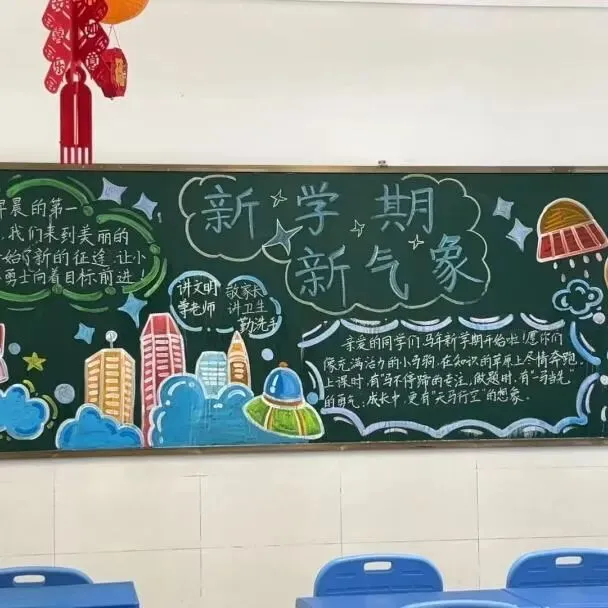 新学期
新气象
晨的第一
我们来到美丽的
始新的征途，让小
勇士向着目标前进！
讲文明 敬家长
尊老师 讲卫生
勤洗手
亲爱的同学们，马年新学期开始啦！愿你们
像充满活力的小马驹，在知识的草原上尽情奔跑。
上课时，有“马不停蹄”的专注，做题时，有“一马当先”
的勇气；成长中，更有“天马行空”的想象。